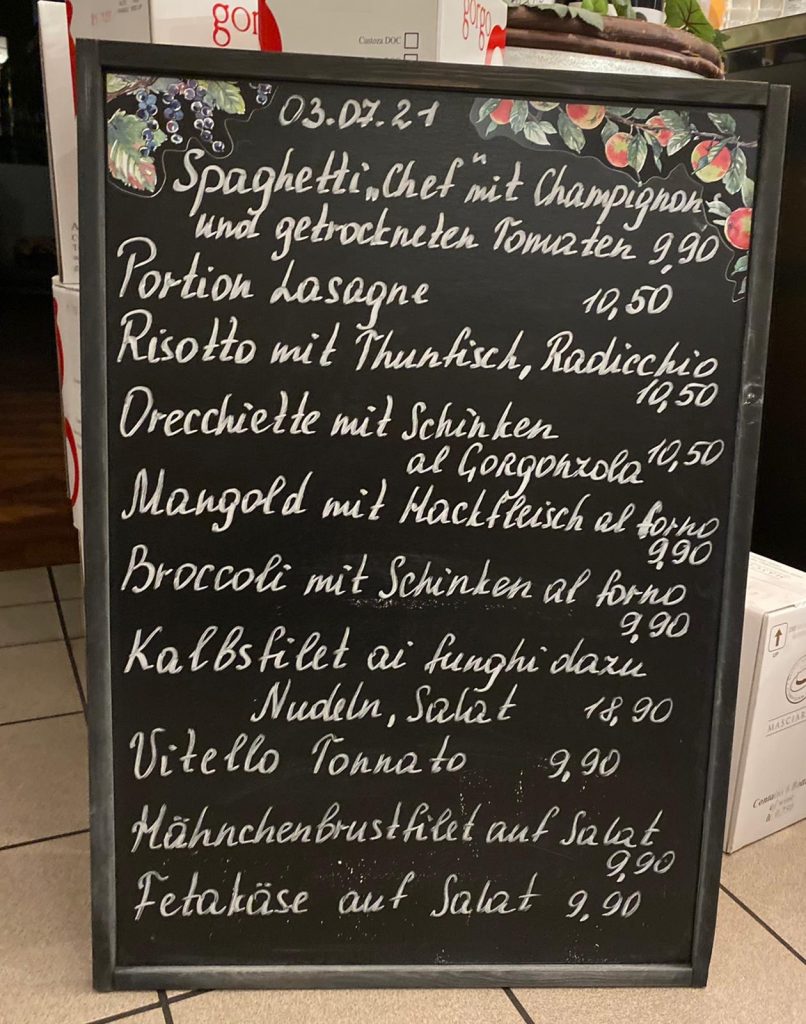 gor
Custoza DOC
gorgo
03.07.21
Spaghetti „Chef“ mit Champignons
und getrockneten Tomaten 9,90
Portion Lasagne 10,50
Risotto mit Thunfisch, Radicchio
10,50
Orecchiette mit Schinken
al Gorgonzola 10,50
Mangold mit Hackfleisch al forno
9,90
Broccoli mit Schinken al forno
9,90
Kalbsfilet ai funghi dazu
Nudeln, Salat 18,90
Vitello Tonnato 9,90
Hähnchenbrustfilet auf Salat
9,90
Fetakäse auf Salat 9,90
UP